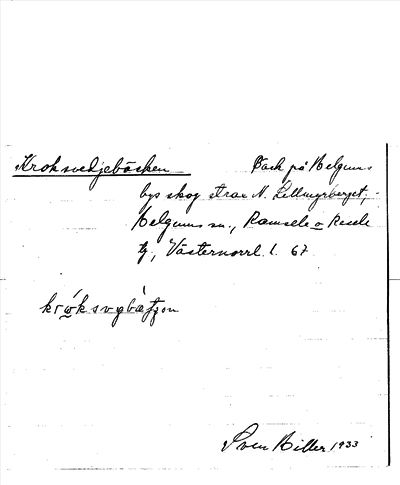 Kroksvedjebäcken Bäck på Helgums
bys skog strax N. Lillmyrberget,
Helgums sn., Ramsele o Resele
tg, Västernorrl. l. 67
Sven Hiller 1933